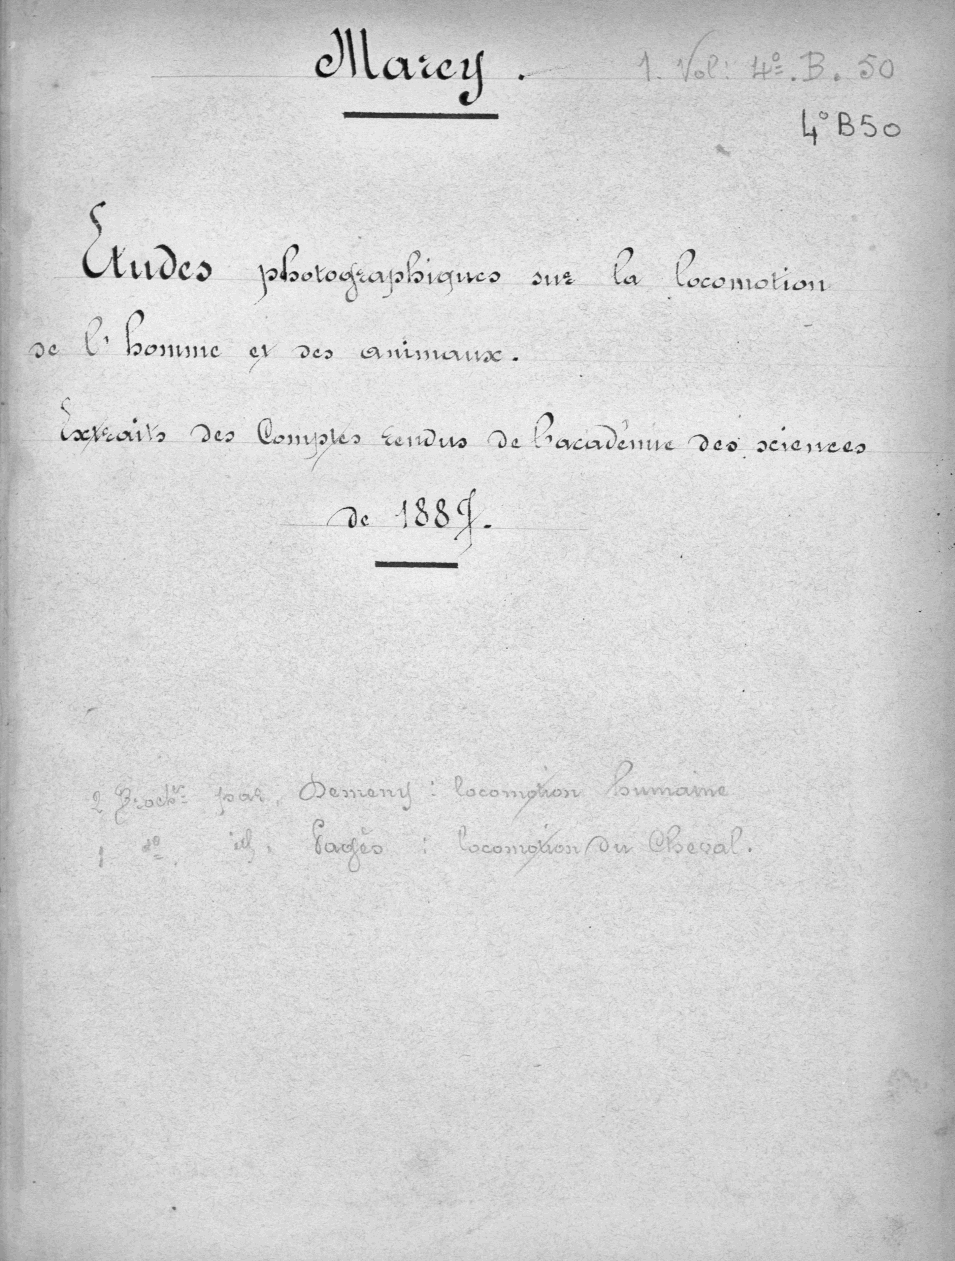 Marey. 1. Vol: 4º. B. 50
4º B 50
Etudes photographiques sur la locomotion
de l'homme et des animaux.
Extraits des Comptes rendus de l'académie des sciences
de 188
2 Broch.res par Demeny : locomotion humaine
1 dº. id. Pagès : locomotion du Cheval.